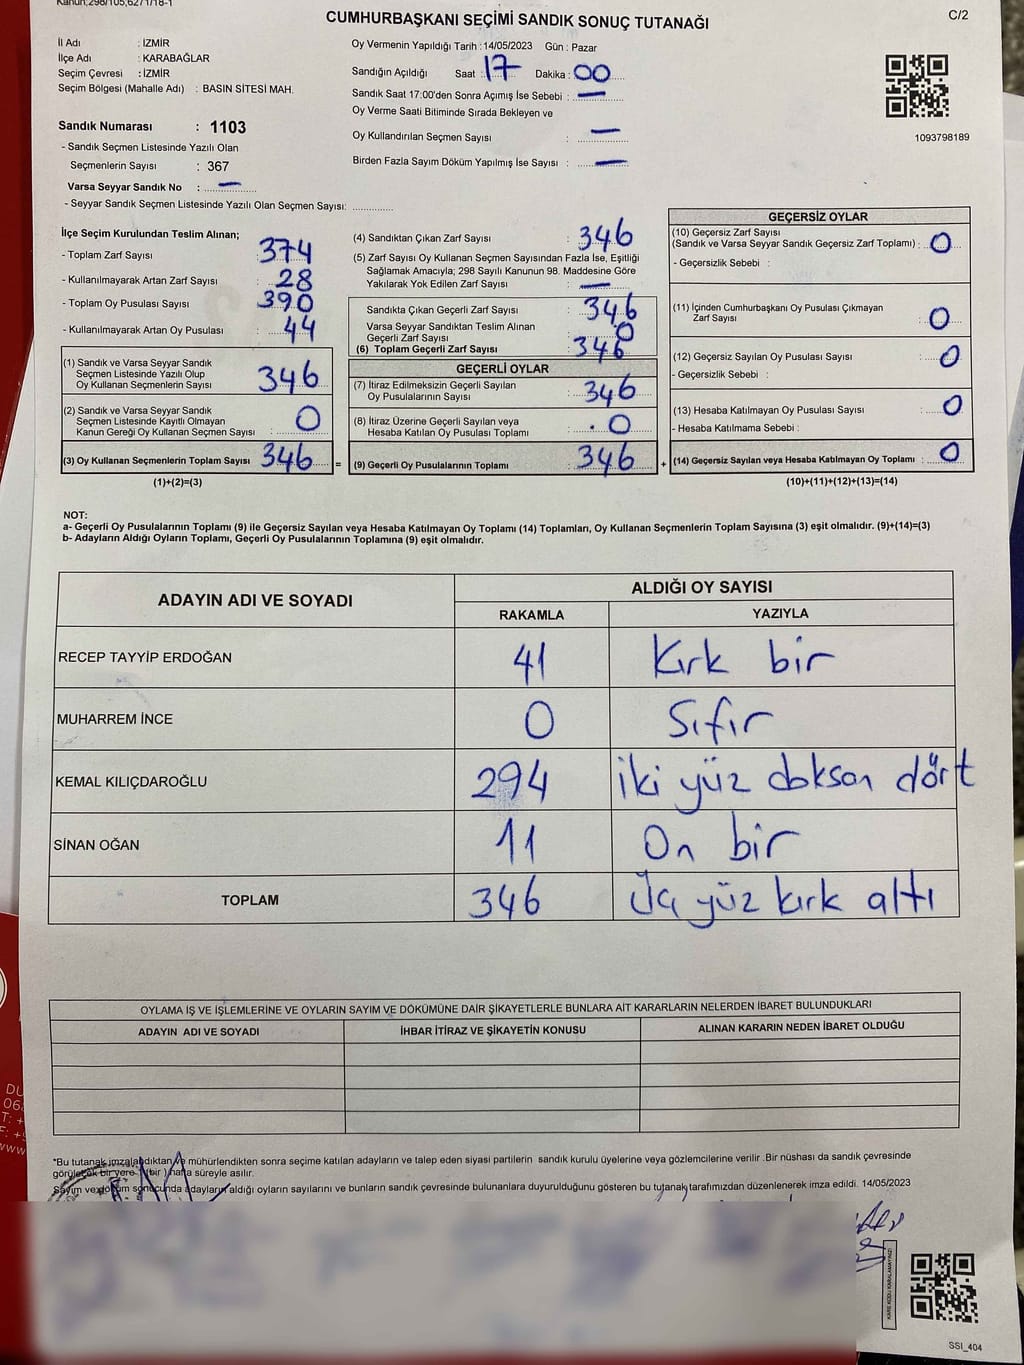 Kanun;298/105,6271/18-1
CUMHURBAŞKANI SEÇİMİ SANDIK SONUÇ TUTANAĞI
C/2
İl Adı : İZMİR
İlçe Adı : KARABAĞLAR
Seçim Çevresi : İZMİR
Seçim Bölgesi (Mahalle Adı) : BASIN SİTESİ MAH.
Sandık Numarası : 1103
- Sandık Seçmen Listesinde Yazılı Olan
Seçmenlerin Sayısı : 367
Varsa Seyyar Sandık No : —
- Seyyar Sandık Seçmen Listesinde Yazılı Olan Seçmen Sayısı: ..............
Oy Vermenin Yapıldığı Tarih : 14/05/2023 Gün : Pazar
Sandığın Açıldığı Saat : 17 Dakika : 00
Sandık Saat 17:00'den Sonra Açımış İse Sebebi : —
Oy Verme Saati Bitiminde Sırada Bekleyen ve
Oy Kullandırılan Seçmen Sayısı : —
Birden Fazla Sayım Döküm Yapılmış İse Sayısı : —
1093798189
İlçe Seçim Kurulundan Teslim Alınan;
- Toplam Zarf Sayısı : 374
- Kullanılmayarak Artan Zarf Sayısı : 28
- Toplam Oy Pusulası Sayısı : 390
- Kullanılmayarak Artan Oy Pusulası : 44
(1) Sandık ve Varsa Seyyar Sandık
Seçmen Listesinde Yazılı Olup
Oy Kullanan Seçmenlerin Sayısı : 346
(2) Sandık ve Varsa Seyyar Sandık
Seçmen Listesinde Kayıtlı Olmayan
Kanun Gereği Oy Kullanan Seçmen Sayısı : 0
(3) Oy Kullanan Seçmenlerin Toplam Sayısı 346 =
(1)+(2)=(3)
(4) Sandıktan Çıkan Zarf Sayısı : 346
(5) Zarf Sayısı Oy Kullanan Seçmen Sayısından Fazla İse, Eşitliği
Sağlamak Amacıyla; 298 Sayılı Kanunun 98. Maddesine Göre
Yakılarak Yok Edilen Zarf Sayısı : —
Sandıkta Çıkan Geçerli Zarf Sayısı : 346
Varsa Seyyar Sandıktan Teslim Alınan
Geçerli Zarf Sayısı : 0
(6) Toplam Geçerli Zarf Sayısı : 346
GEÇERLİ OYLAR
(7) İtiraz Edilmeksizin Geçerli Sayılan
Oy Pusulalarının Sayısı : 346
(8) İtiraz Üzerine Geçerli Sayılan veya
Hesaba Katılan Oy Pusulası Toplamı : 0
(9) Geçerli Oy Pusulalarının Toplamı : 346 +
GEÇERSİZ OYLAR
(10) Geçersiz Zarf Sayısı
(Sandık ve Varsa Seyyar Sandık Geçersiz Zarf Toplamı) : 0
- Geçersizlik Sebebi :
(11) İçinden Cumhurbaşkanı Oy Pusulası Çıkmayan
Zarf Sayısı : 0
(12) Geçersiz Sayılan Oy Pusulası Sayısı : 0
- Geçersizlik Sebebi :
(13) Hesaba Katılmayan Oy Pusulası Sayısı : 0
- Hesaba Katılmama Sebebi :
(14) Geçersiz Sayılan veya Hesaba Katılmayan Oy Toplamı : 0
(10)+(11)+(12)+(13)=(14)
NOT:
a- Geçerli Oy Pusulalarının Toplamı (9) ile Geçersiz Sayılan veya Hesaba Katılmayan Oy Toplamı (14) Toplamları, Oy Kullanan Seçmenlerin Toplam Sayısına (3) eşit olmalıdır. (9)+(14)=(3)
b- Adayların Aldığı Oyların Toplamı, Geçerli Oy Pusulalarının Toplamına (9) eşit olmalıdır.
ADAYIN ADI VE SOYADI
ALDIĞI OY SAYISI
RAKAMLA YAZIYLA
RECEP TAYYİP ERDOĞAN 41 Kırk bir
MUHARREM İNCE 0 Sıfır
KEMAL KILIÇDAROĞLU 294 iki yüz doksan dört
SİNAN OĞAN 11 On bir
TOPLAM 346 Üç yüz kırk altı
OYLAMA İŞ VE İŞLEMLERİNE VE OYLARIN SAYIM VE DÖKÜMÜNE DAİR ŞİKAYETLERLE BUNLARA AİT KARARLARIN NELERDEN İBARET BULUNDUKLARI
ADAYIN ADI VE SOYADI İHBAR İTİRAZ VE ŞİKAYETİN KONUSU ALINAN KARARIN NEDEN İBARET OLDUĞU
*Bu tutanak imzalandıktan ve mühürlendikten sonra seçime katılan adayların ve talep eden siyasi partilerin sandık kurulu üyelerine veya gözlemcilerine verilir .Bir nüshası da sandık çevresinde
görülecek bir yere 1(bir ) hafta süreyle asılır.
Sayım ve döküm sonucunda adayların aldığı oyların sayılarını ve bunların sandık çevresinde bulunanlara duyurulduğunu gösteren bu tutanak tarafımızdan düzenlenerek imza edildi. 14/05/2023
KARE KODU KARALAMAYINIZ!
SSİ_404
DU
06
T: +
F: +
www